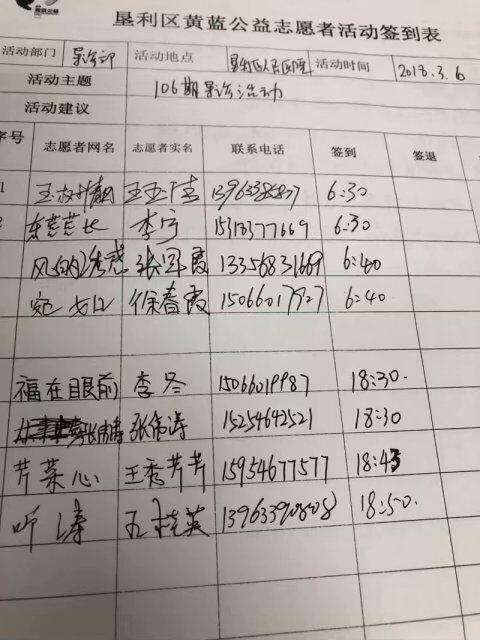 垦利区黄蓝公益志愿者活动签到表
活动部门 活动地点 垦利区人民医院 活动时间 2018.3.6
活动主题 106期 活动
活动建议
序号 志愿者网名 志愿者实名 联系电话 签到 签退
1 6:30
2 李宁 15313377669 6:30
风的 张军霞 13356831669 6:40
徐春霞 15066017927 6:40
福在眼前 李冬 15066019987 18:30.
张伟涛 15254642521 18:30
芹菜心 王秀芹 15954677577 18:45
听涛 王桂英 13963390808 18:50.